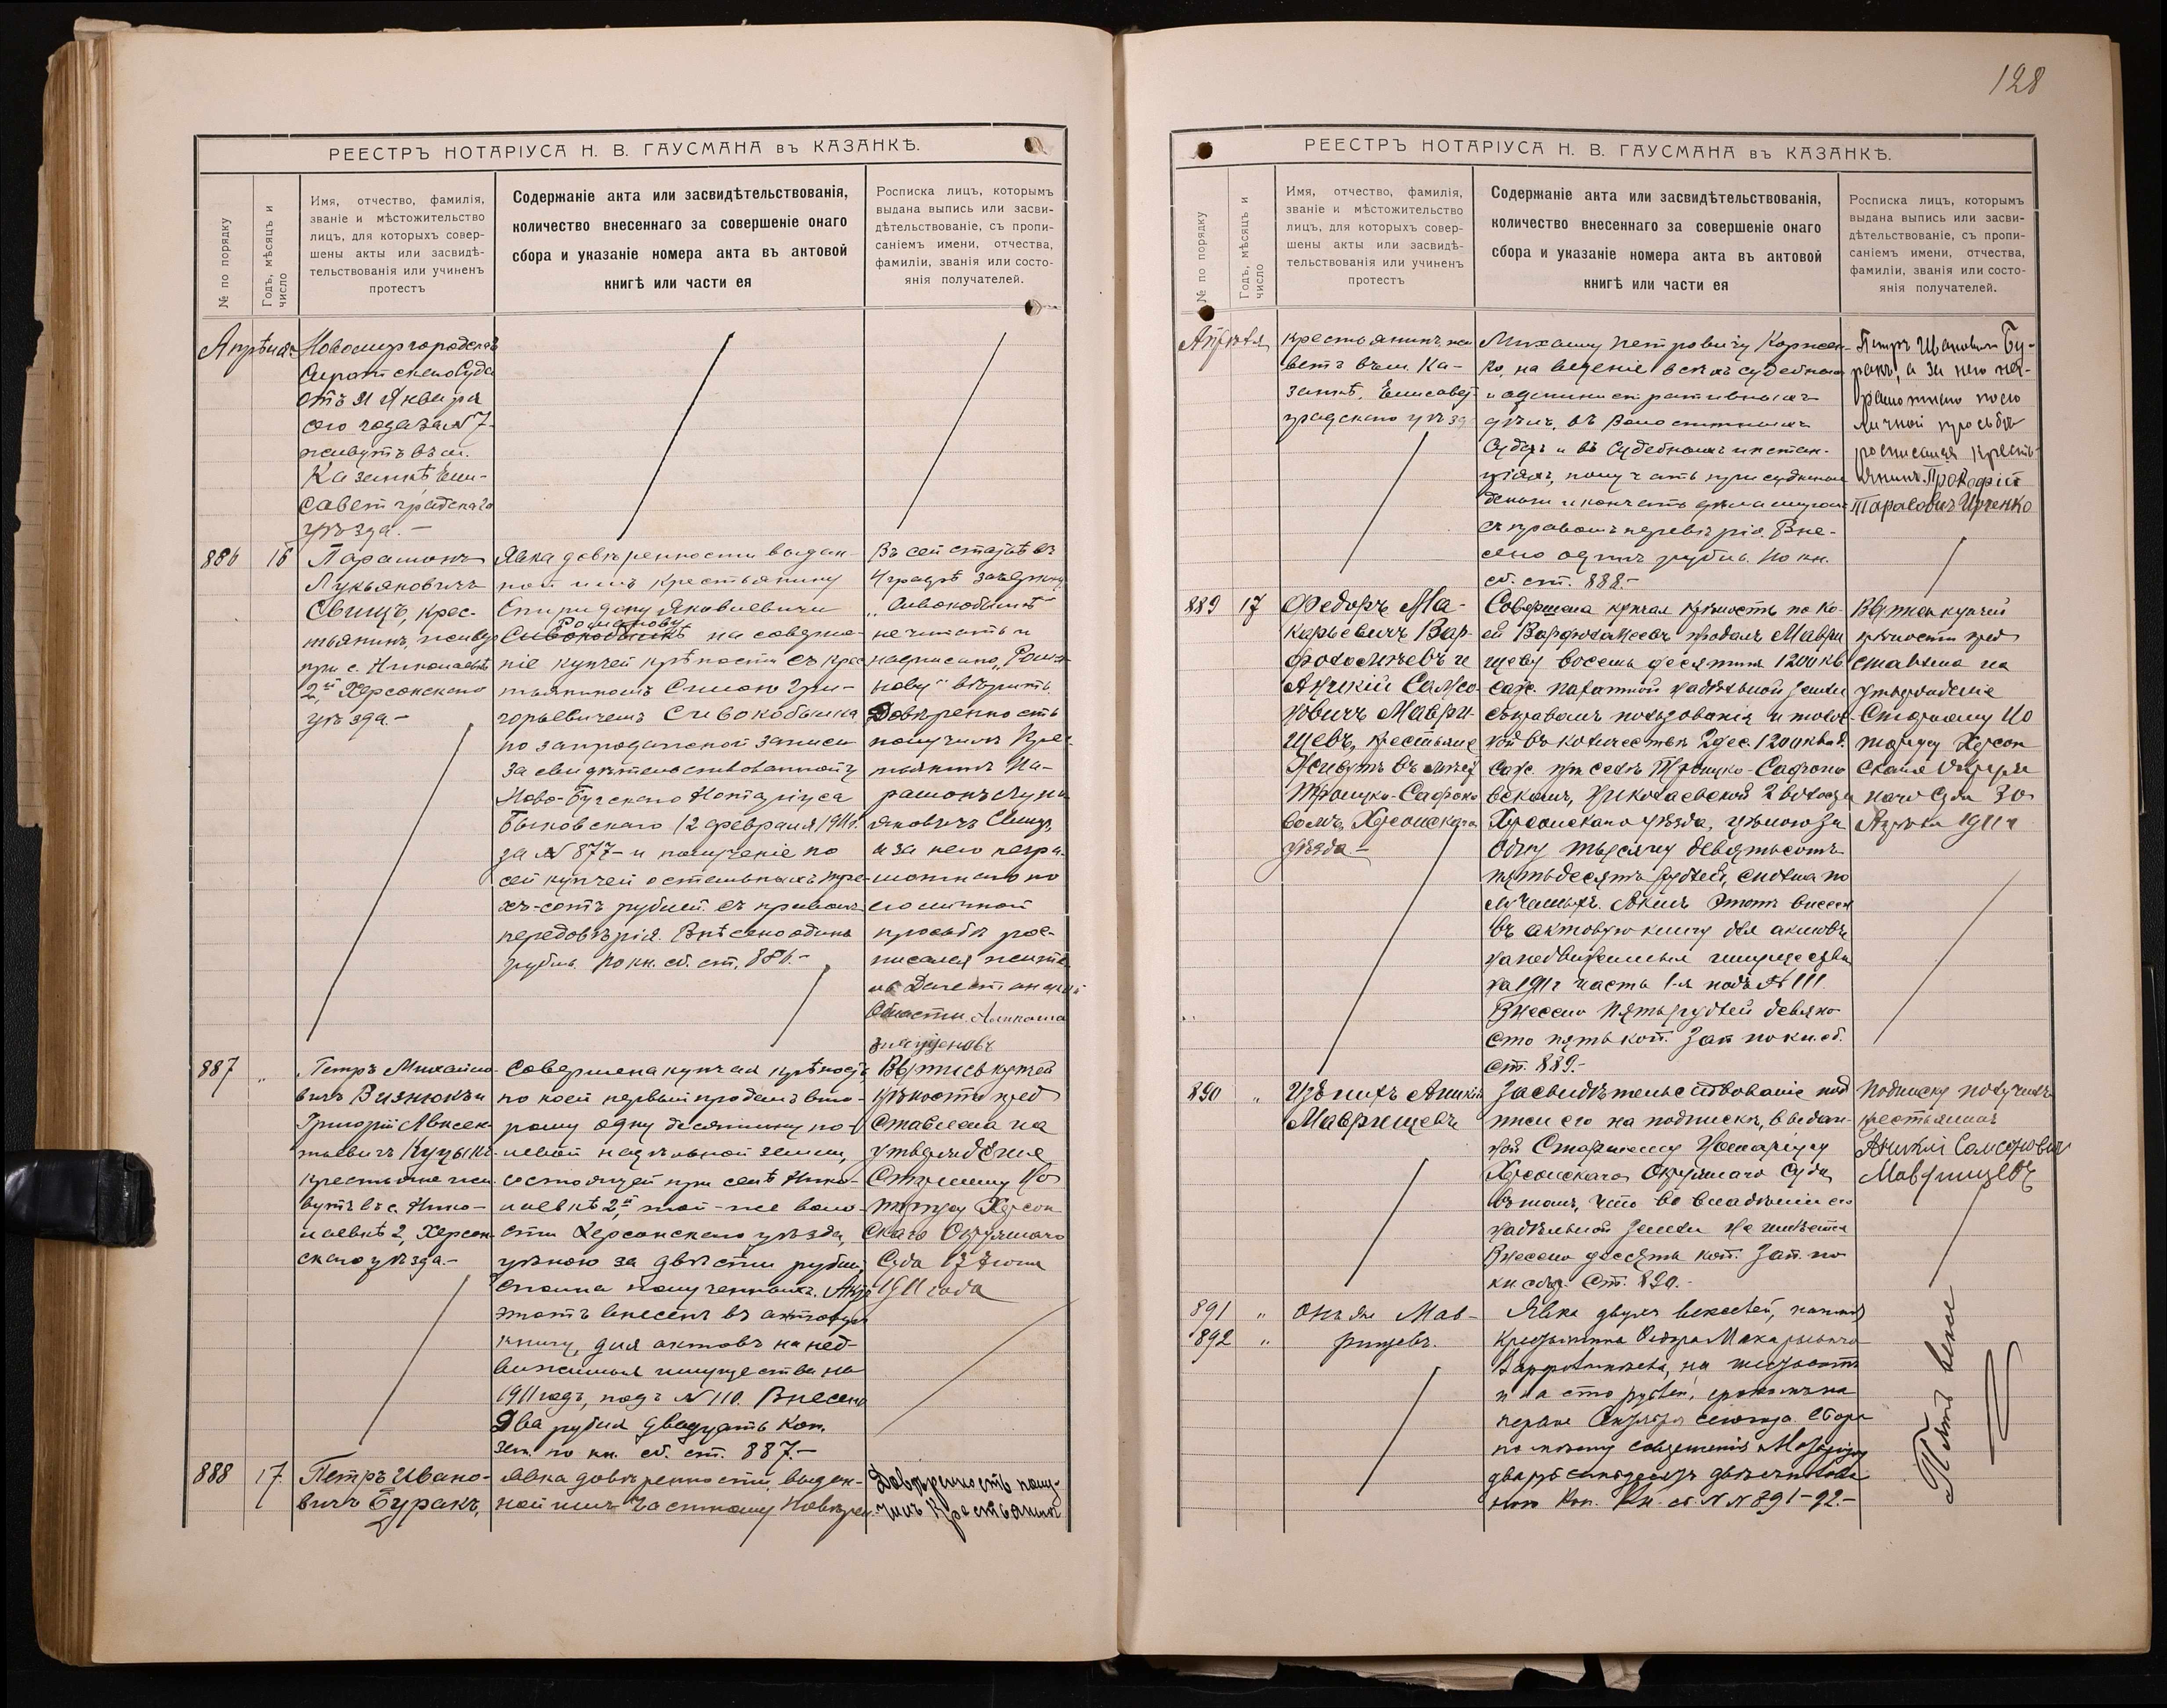 128
РЕЕСТРЪ НОТАРІУСА Н. В. ГАУСМАНА въ КАЗАНКѢ.
№ по порядку
Годъ, мѣсяцъ и
число
Имя, отчество, фамилія,
званіе и мѣстожительство
лицъ, для которыхъ совер-
шены акты или засвидѣ-
тельствованія или учиненъ
протестъ
Содержаніе акта или засвидѣтельствованія,
количество внесеннаго за совершеніе онаго
сбора и указаніе номера акта въ актовой
книгѣ или части ея
Росписка лицъ, которымъ
выдана выпись или засви-
дѣтельствованіе, съ пропи-
саніемъ имени, отчества,
фамиліи, званія или состо-
янія получателей.
Апрѣля
Новомиргородскаго
Сиротскаго Суда
отъ 21 Января
сего года за № 7
живутъ въ м.
Казанкѣ Ели-
саветградскаго
уѣзда.—
886
16
Парамонъ
Лукьяновичъ
Свищъ, крес-
тьянинъ, живу
при с. Николаевкѣ
2й, Херсонскаго
уѣзда.—
Явка довѣренности выдан-
ной имъ крестьянину
Спиридону Яковлевичу
Романову
на соверше-
ніе купчей крѣпости съ крес
тьяниномъ Симон Гри-
горьевичемъ Сивокобылка
по запродажной записи
засвидѣтельствованной у
Ново-Бугскаго Нотаріуса
Быковскаго 12 февраля 1911 г.
за № 877 и полученіе по
сей купчей остальныхъ тре-
хъ-сотъ рублей съ правомъ
передовѣрія. Внѣсено одинъ
рубль. по кн. сб. ст. 886.—
Въ сей статьѣ въ
4 графѣ зачеркну
„Сивокобылкѣ"
не читать и
надписано „Рома
нову" вѣрить.
Довѣренность
получилъ Крес-
тьянинъ Па-
рамонъ Лукь
яновичъ Свищъ,
а за него негра-
мотнаго по
его личной
просьбѣ рос-
писался жите
ль Дагестанской
Области
887
„
Петръ Михайло-
вичъ Визнюкъ и
Григорій Авксен-
тьевичъ Куцыкъ
крестьяне жи-
вутъ въ с. Нико-
лаевкѣ 2, Херсон
скаго уѣзда.—
Совершена купчая крѣпость
по коей первый продалъ вто-
рому одну десятину по-
левой надѣльной земли,
состоящей при селѣ Нико-
лаевкѣ 2й, той-же воло-
сти Херсонскаго уѣзда,
цѣною за двѣсти рублей,
сполна полученныхъ. Актъ
этотъ внесенъ въ актовую
книгу, для актовъ на нед-
вижимыя имущества на
1911 годъ, подъ № 110. Внесено
Два рубля двадцать коп.
зап. по кн. сб. ст. 887.—
Выпись купчей
крѣпости пред
ставлена на
утвержденіе
Старшему Но
таріусу Херсон
скаго Окружнаго
Суда 13 Іюня
1911 года
888
17
Петръ Ивано-
вичъ Буракъ,
Явка довѣренности, выдан-
ной имъ частному повѣрен
Довѣренность полу-
чилъ Крестьянинъ
РЕЕСТРЪ НОТАРІУСА Н. В. ГАУСМАНА въ КАЗАНКѢ.
№ по порядку
Годъ, мѣсяцъ и
число
Имя, отчество, фамилія,
званіе и мѣстожительство
лицъ, для которыхъ совер-
шены акты или засвидѣ-
тельствованія или учиненъ
протестъ
Содержаніе акта или засвидѣтельствованія,
количество внесеннаго за совершеніе онаго
сбора и указаніе номера акта въ актовой
книгѣ или части ея
Росписка лицъ, которымъ
выдана выпись или засви-
дѣтельствованіе, съ пропи-
саніемъ имени, отчества,
фамиліи, званія или состо-
янія получателей.
Апрѣля
крестьянинъ, жи
ветъ въ м. Ка-
занкѣ, Елисавет
градскаго уѣзд
Михаилу Петровичу Коржен-
ко, на веденіе всѣхъ судебныхъ
и административныхъ
дѣлъ, въ Волостныхъ
Судахъ и въ Судебныхъ инстан-
ціяхъ, получать присужденныя
деньги и кончать дѣла миромъ
съ правомъ передовѣрія. Вне-
сено одинъ рубль. по кн.
сб. ст. 888.—
Петръ Ивановичъ Бу-
ракъ, а за него нег-
рамотнаго по его
личной просьбѣ
росписался кресть-
янинъ Прокофій
Тарасовичъ Ищенко
889
17
Федоръ Ма-
карьевичъ Вар-
фоломѣевъ и
Аникій Самсо-
новичъ Маври-
щевъ, крестьяне
Живутъ въ селѣ
Троицко-Сафоно
вомъ, Херсонскаго
уѣзда —
Совершена купчая крѣпость по ко-
ей Варфоломеевъ продалъ Маври
щеву восемь десятинъ 1200 кв
саж. пахатной надѣльной земли
съ правомъ пользованія и толо-
кой въ количествѣ 2 дес. 1200 квад.
саж. при селѣ Троицко-Сафоно
вскомъ, Николаевской 2 волости
Херсонскаго уѣзда, цѣною за
одну тысячу девятьсотъ
пятьдесятъ рублей, сполна по
лученныхъ. Актъ этотъ внесен
въ актовую книгу для актовъ
на недвижимыя имущества
на 1911 г часть 1-я подъ № 111.
Внесено пять рублей девяно-
сто пять коп. Зап по кн. сб.
ст. 889.—
Выпись купчей
крѣпости пред
ставлена на
утвержденіе
Старшему Но
таріусу Херсон
скаго Окруж
наго Суда 30
Апрѣля 1911 г
890
„
Изъ нихъ Аникій
Маврищевъ
Засвидѣтельствованіе под
писи его на подпискѣ, выдан-
ной Старшему Нотаріусу
Херсонскаго Окружнаго Суда
въ томъ, что во владѣніи его
надѣльной земли не имѣется
Внесено десять коп. Зап. по
кн. сбор. ст. 890.—
Подписку получилъ
крестьянинъ
Аникій Самсоновичъ
Маврищевъ
891
„
892
„
Онъ же Мав-
рищевъ.
Явка двухъ векселей,
крестьянина Федора Макарьевича
Варфоломѣева, на шестьсотъ
и на сто рублей, срокомъ на
первое Октября сего года. Сбора
кн. сб. № № 891-92.—